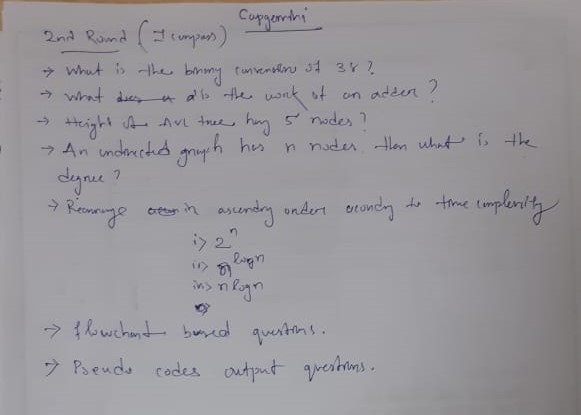 Capgemini
2nd Round (I compass)
→ What is the binary conversion of 38?
→ What is the work of an adder?
→ Height AVL tree hvg 5 nodes?
→ An undirected graph has n nodes then what is the
degree?
→ Rearrange in ascendng order accordg to time complexity
i> 2^n
ii> n^logn
iii> n logn
→ flowchart based questions.
→ Pseudo codes output questions.